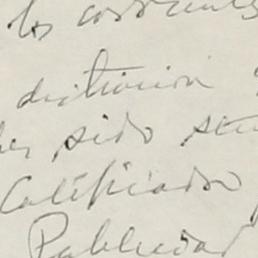 los corrientes
distinción
sido
Calificado
Publicidad